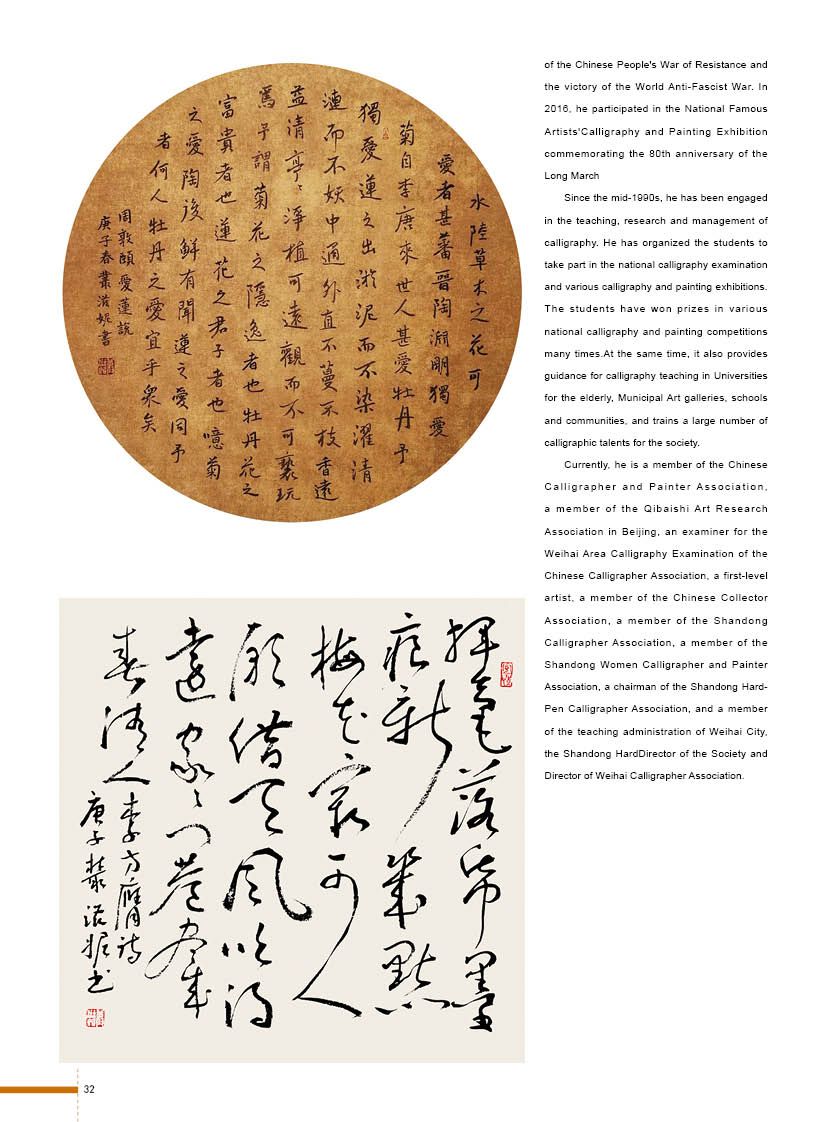 水陸草木之花可
愛者甚蕃晉陶淵明獨愛
菊自李唐來世人甚愛牡丹予
獨愛蓮之出淤泥而不染濯清
漣而不妖中通外直不蔓不枝香遠
益清亭〻淨植可遠觀而不可褻玩
焉予謂菊花之隱逸者也牡丹花之
富貴者也蓮花之君子者也噫菊
之愛陶後鮮有聞蓮之愛同予
者何人牡丹之愛宜乎衆矣
周敦頤愛蓮説
庚子春叢滋妮書
揮毫落帋墨
痕新幾點
梅花最可人
願借天風吹得
遠家〻門巷盡成
春清人
李方膺詩
庚子叢滋妮书
of the Chinese People's War of Resistance and
the victory of the World Anti-Fascist War. In
2016, he participated in the National Famous
Artists'Calligraphy and Painting Exhibition
commemorating the 80th anniversary of the
Long March
Since the mid-1990s, he has been engaged
in the teaching, research and management of
calligraphy. He has organized the students to
take part in the national calligraphy examination
and various calligraphy and painting exhibitions.
The students have won prizes in various
national calligraphy and painting competitions
many times.At the same time, it also provides
guidance for calligraphy teaching in Universities
for the elderly, Municipal Art galleries, schools
and communities, and trains a large number of
calligraphic talents for the society.
Currently, he is a member of the Chinese
Calligrapher and Painter Association,
a member of the Qibaishi Art Research
Association in Beijing, an examiner for the
Weihai Area Calligraphy Examination of the
Chinese Calligrapher Association, a first-level
artist, a member of the Chinese Collector
Association, a member of the Shandong
Calligrapher Association, a member of the
Shandong Women Calligrapher and Painter
Association, a chairman of the Shandong Hard-
Pen Calligrapher Association, and a member
of the teaching administration of Weihai City,
the Shandong HardDirector of the Society and
Director of Weihai Calligrapher Association.
32